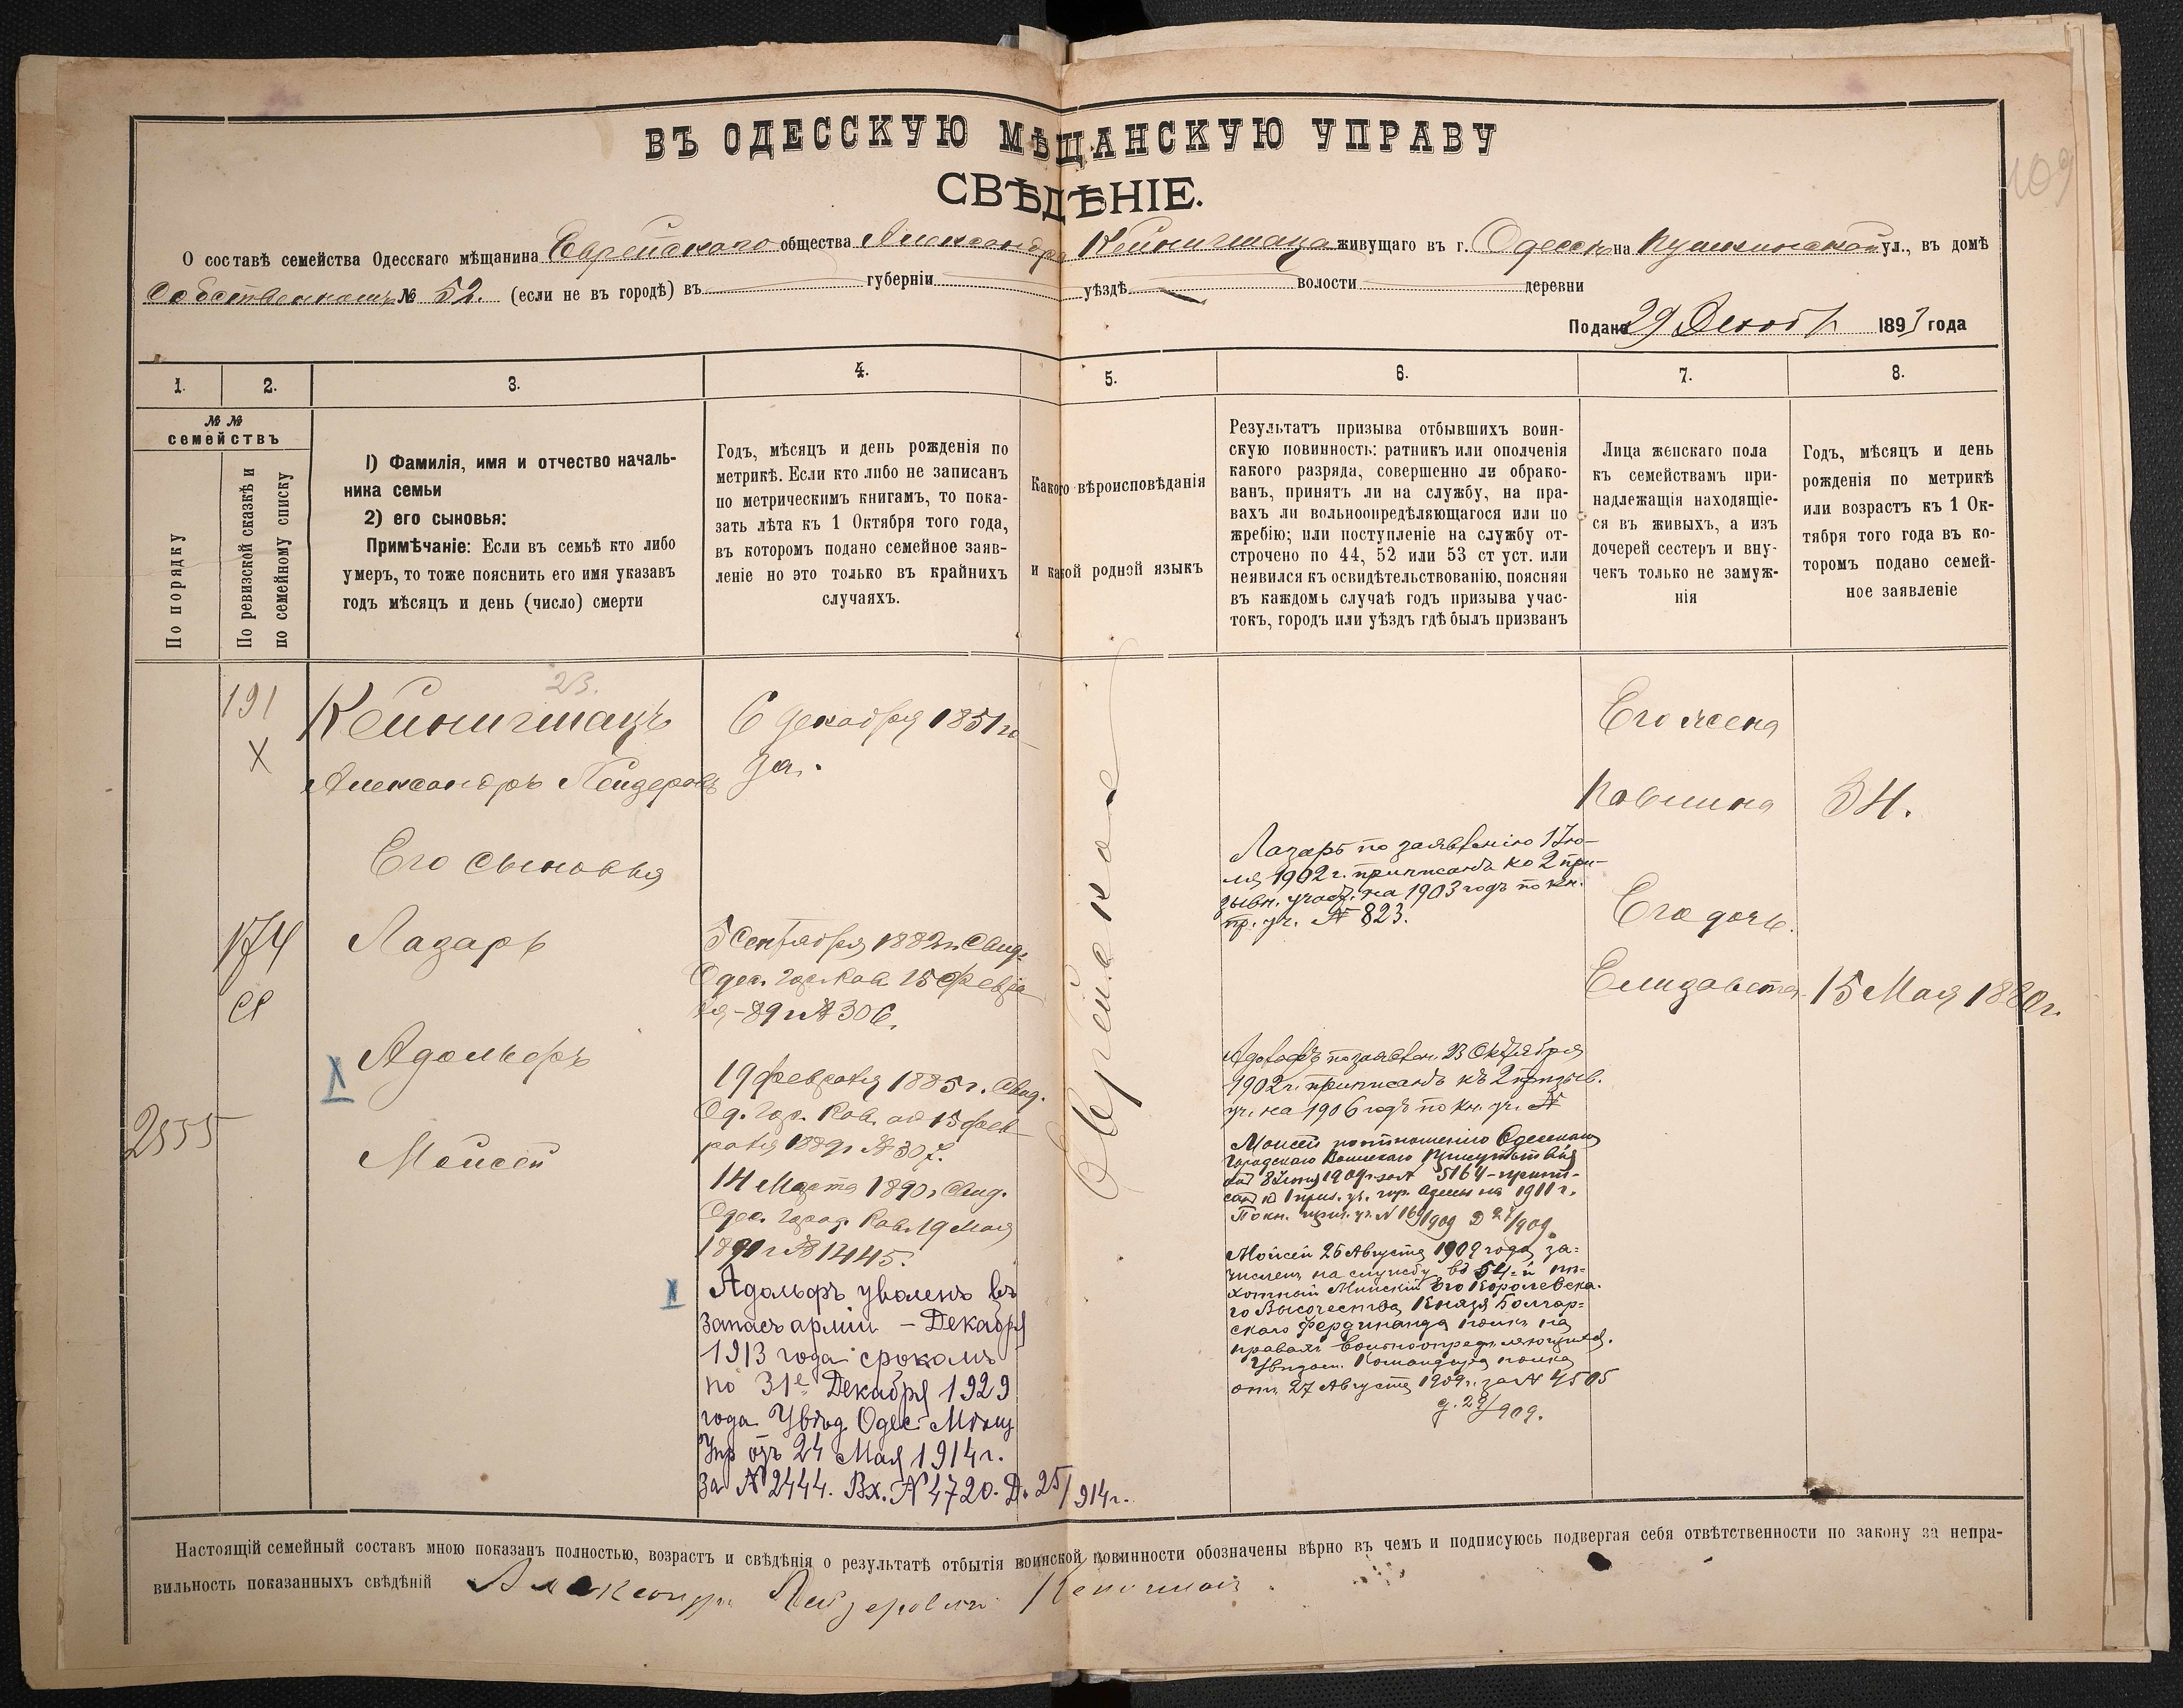 109
ВЪ ОДЕССКУЮ МѢЩАНСКУЮ УПРАВУ
СВѢДѢНІЕ.
О составѣ семейства Одесскаго мѣщанина Еврейскаго общества Александра Кейнигшаца живущаго въ г. Одессѣ на Пушкинской ул., въ домѣ
Собственномъ № 52. (если не въ городѣ) въ губерніи уѣздѣ волости деревни
Подано 29 Декаб 1893 года
1. 2. 3. 4. 5. 6. 7. 8.
№ №
семействъ
По порядку
По ревизской сказкѣ и
по семейному списку
1) Фамилія, имя и отчество началь-
ника семьи
2) его сыновья:
Примѣчаніе: Если въ семьѣ кто либо
умеръ, то тоже пояснить его имя указавъ
годъ мѣсяцъ и день (число) смерти
Годъ, мѣсяцъ и день рожденія по
метрикѣ. Если кто либо не записанъ
по метрическимъ книгамъ, то пока-
зать лѣта къ 1 Октября того года,
въ которомъ подано семейное заяв-
леніе но это только въ крайнихъ
случаяхъ.
Какого вѣроисповѣданія
и какой родной языкъ
Результатъ призыва отбывшихъ воин-
скую повинность: ратникъ или ополченія
какого разряда, совершенно ли обрако-
ванъ, принятъ ли на службу, на пра-
вахъ ли вольноопредѣляющагося или по
жребію; или поступленіе на службу от-
строчено по 44, 52 или 53 ст уст. или
неявился къ освидѣтельствованію, поясняя
въ каждомъ случаѣ годъ призыва учас-
токъ, городъ или уѣздъ гдѣ былъ призванъ
Лица женскаго пола
къ семействамъ при-
надлежащія находящіе-
ся въ живыхъ, а изъ
дочерей сестеръ и вну-
чекъ только не замуж-
нія
Годъ, мѣсяцъ и день
рожденія по метрикѣ
или возрастъ къ 1 Ок-
тября того года въ ко-
торомъ подано семей-
ное заявленіе
191
X
23.
Кейнигшацъ
Александръ Лейзеровъ
Его сыновья
174
Лазарь
Адольфъ
X
2555
Моисей
6 декабря 1851 го-
да.
5 Сентября 1882 г. Свид.
Одес. Гор. Рав. 15 Февра
ля -89 г № 306.
19 февраля 1885 г. Свид.
Од. Гор. Рав. от 15 фев-
раля 1889 г № 307.
14 Марта 1890 г. Свид.
Одес. Город. Рав. 19 Мая
1890 г № 1445.
X
Адольфъ уволенъ въ
запасъ арміи - Декабря
1913 года срокомъ
по 31е Декабря 1929
года Увѣд. Одес. Мѣщ
Упр отъ 24 Мая 1914 г.
за № 2444. Вх. № 4720. Д. 25/914 г.
Еврейское
Лазарь по заявленію 1 Iю-
ля 1902 г. приписанъ ко 2 при-
зывн. участ. на 1903 годъ по кн.
пр. уч. № 823.
Адольфъ по заявлен. 23 Октября
1902 г. приписанъ къ 2 призыв.
уч. на 1906 годъ по кн. уч. №
Моисей по отношенію Одесскаго
Городского Воинскаго Присутствія
от 8 1909 г. за № 5164 - припи-
сан к 1 приз. уч. гор. Одессы на 1911 г.
По кн. приз. уч. № 169/909 Д 27/909
Мойсей 26 Августа 1909 года за-
численъ на службу въ 54-й пѣ-
хотный Минскій Его Королевска-
го Высочества Князя Болгар-
скаго Фердинанда полкъ на
правахъ вольноопредѣляющагося.
Увѣдом. Командира полка
отъ 27 Августа 1909 г. за № 4505
д. 29/909.
Его жена
Павлина 34.
Его дочь.
Елизавета 15 Мая 1880 г.
Настоящій семейный составъ мною показанъ полностью, возрастъ и свѣдѣнія о результатѣ отбытія воинской повинности обозначены вѣрно въ чемъ и подписуюсь подвергая себя отвѣтственности по закону за непра-
вильность показанныхъ свѣдѣній Александръ Лейзеровичъ